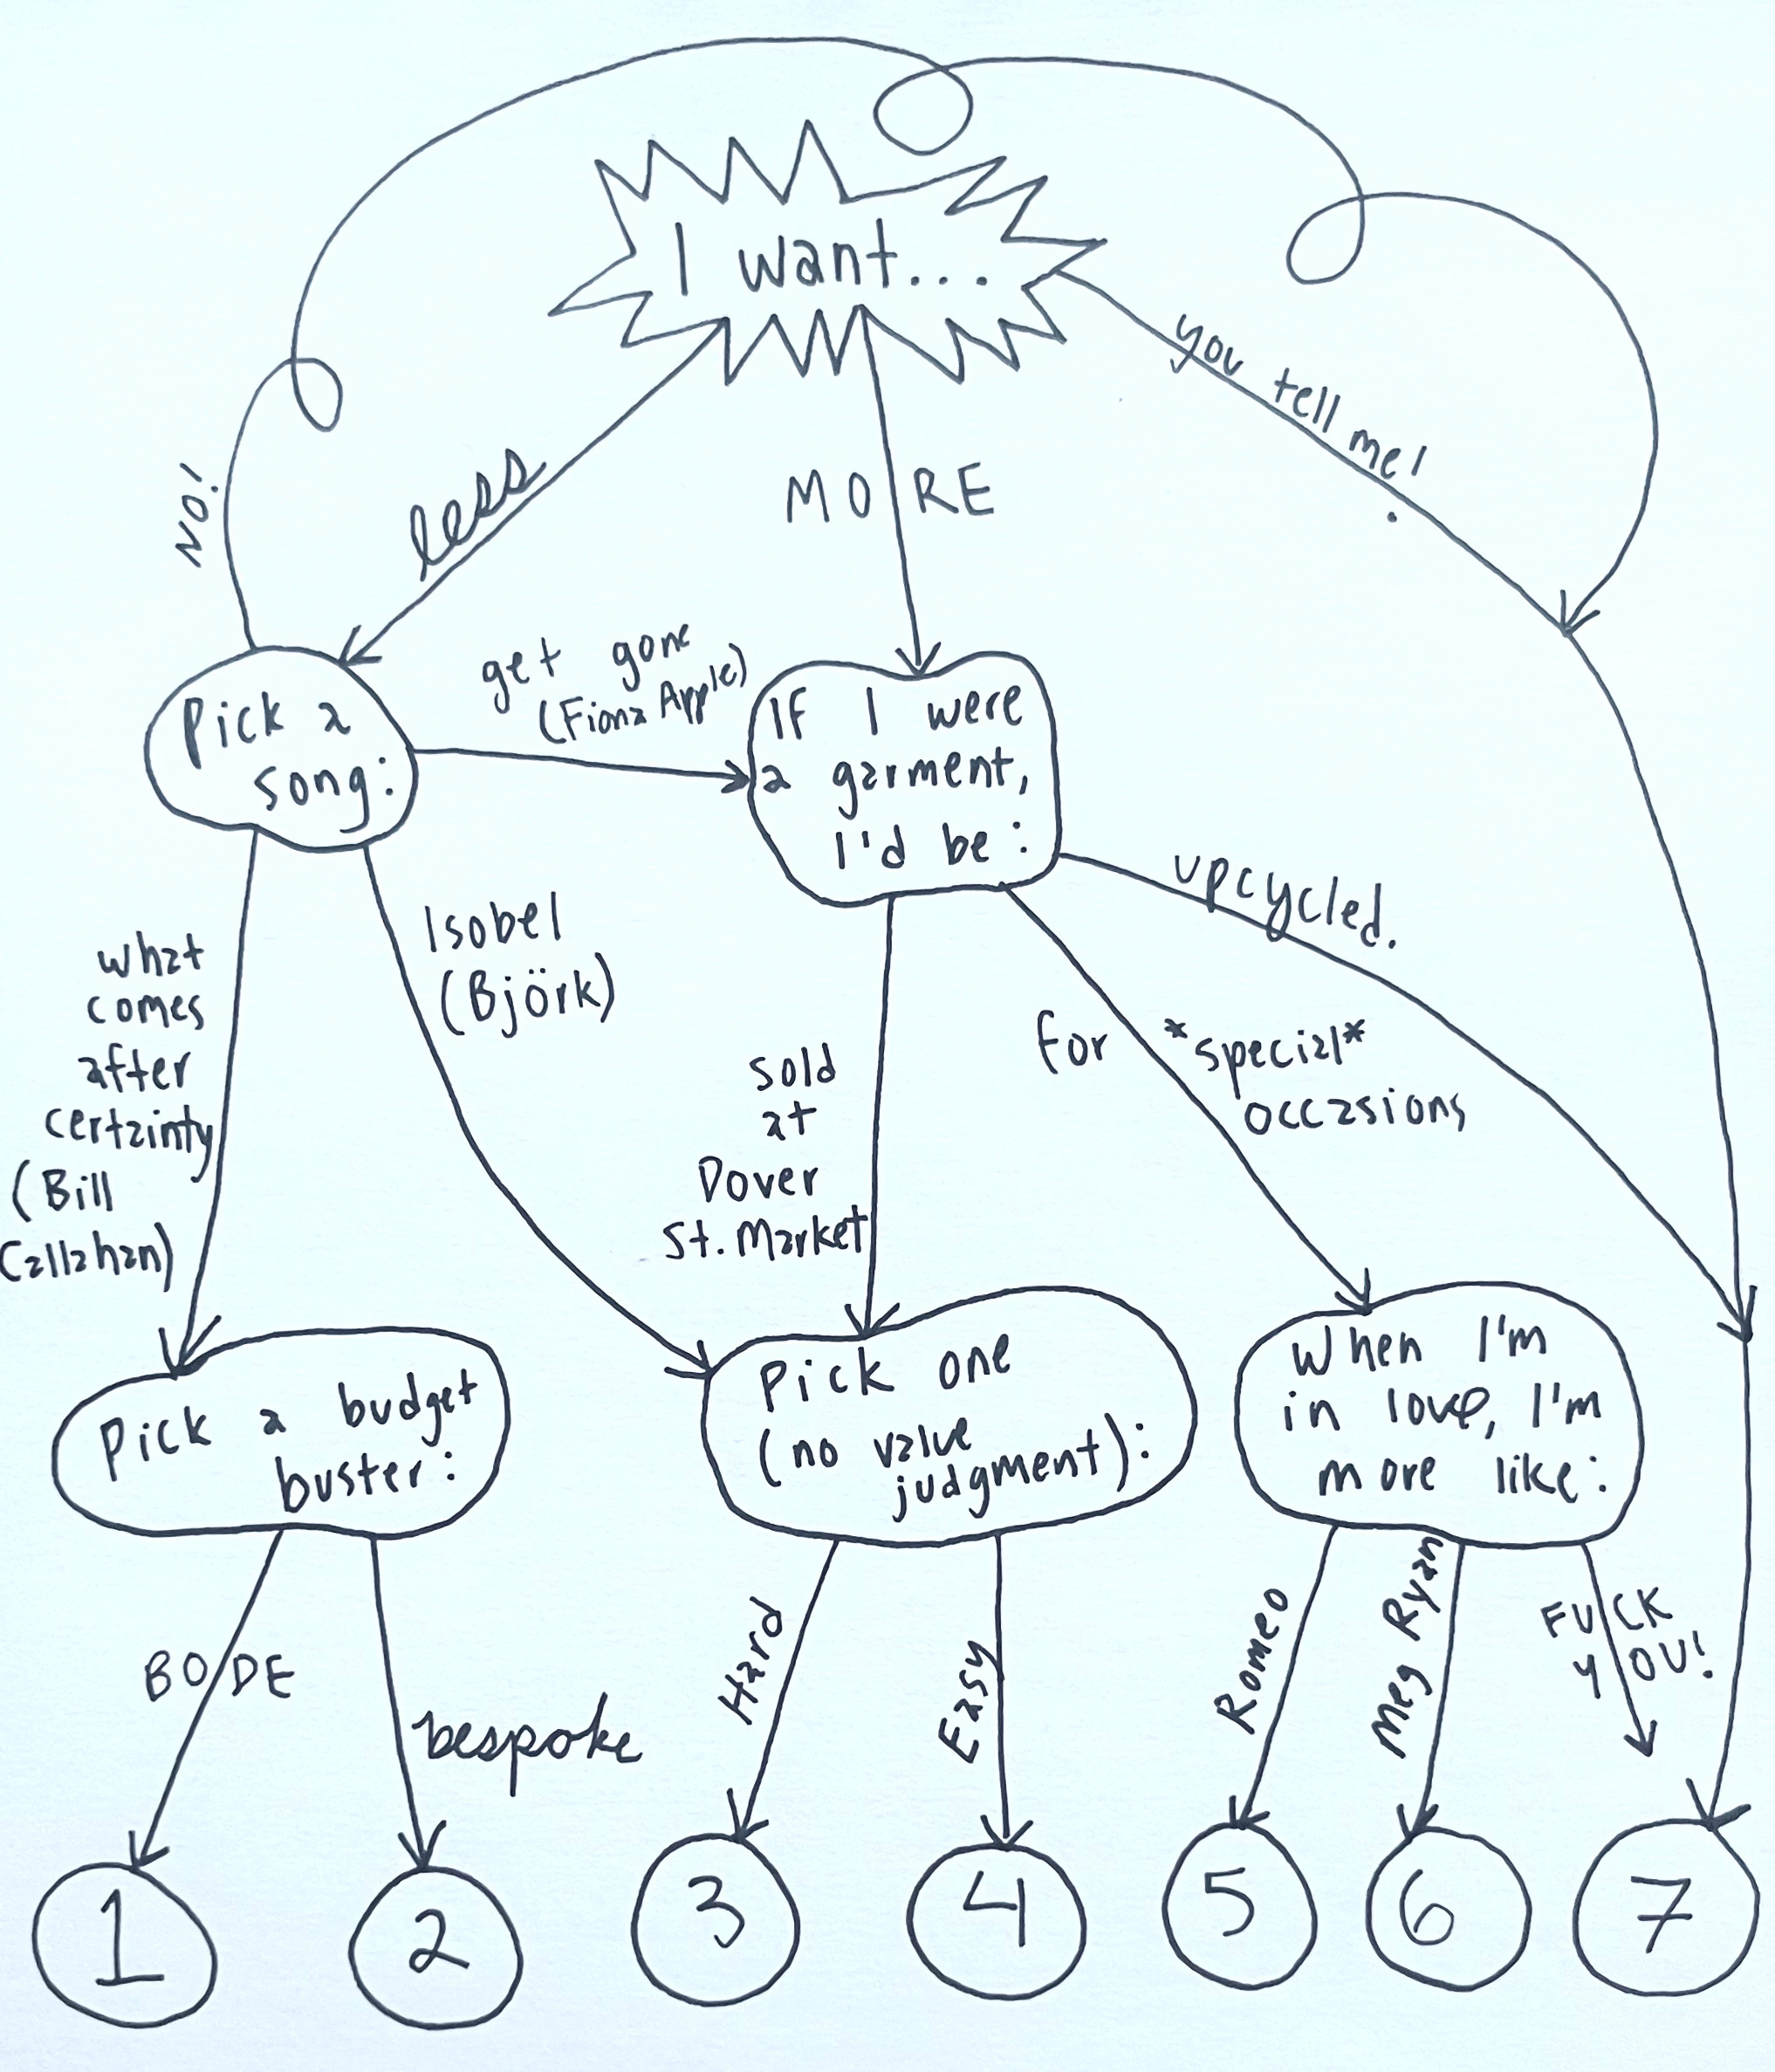 I want...
NO!
less
MORE
you tell me!
Pick a
song:
get gone
(Fiona Apple)
If I were
a garment,
I'd be:
upcycled.
what
comes
after
certainty
(Bill
Callahan)
Isobel
(Björk)
sold
at
Dover
St. Market
for *special*
occasions
Pick a budget
buster:
Pick one
(no value
judgment):
When I'm
in love, I'm
more like:
BODE
bespoke
Hard
Easy
Romeo
Meg Ryan
FUCK
YOU!
1
2
3
4
5
6
7